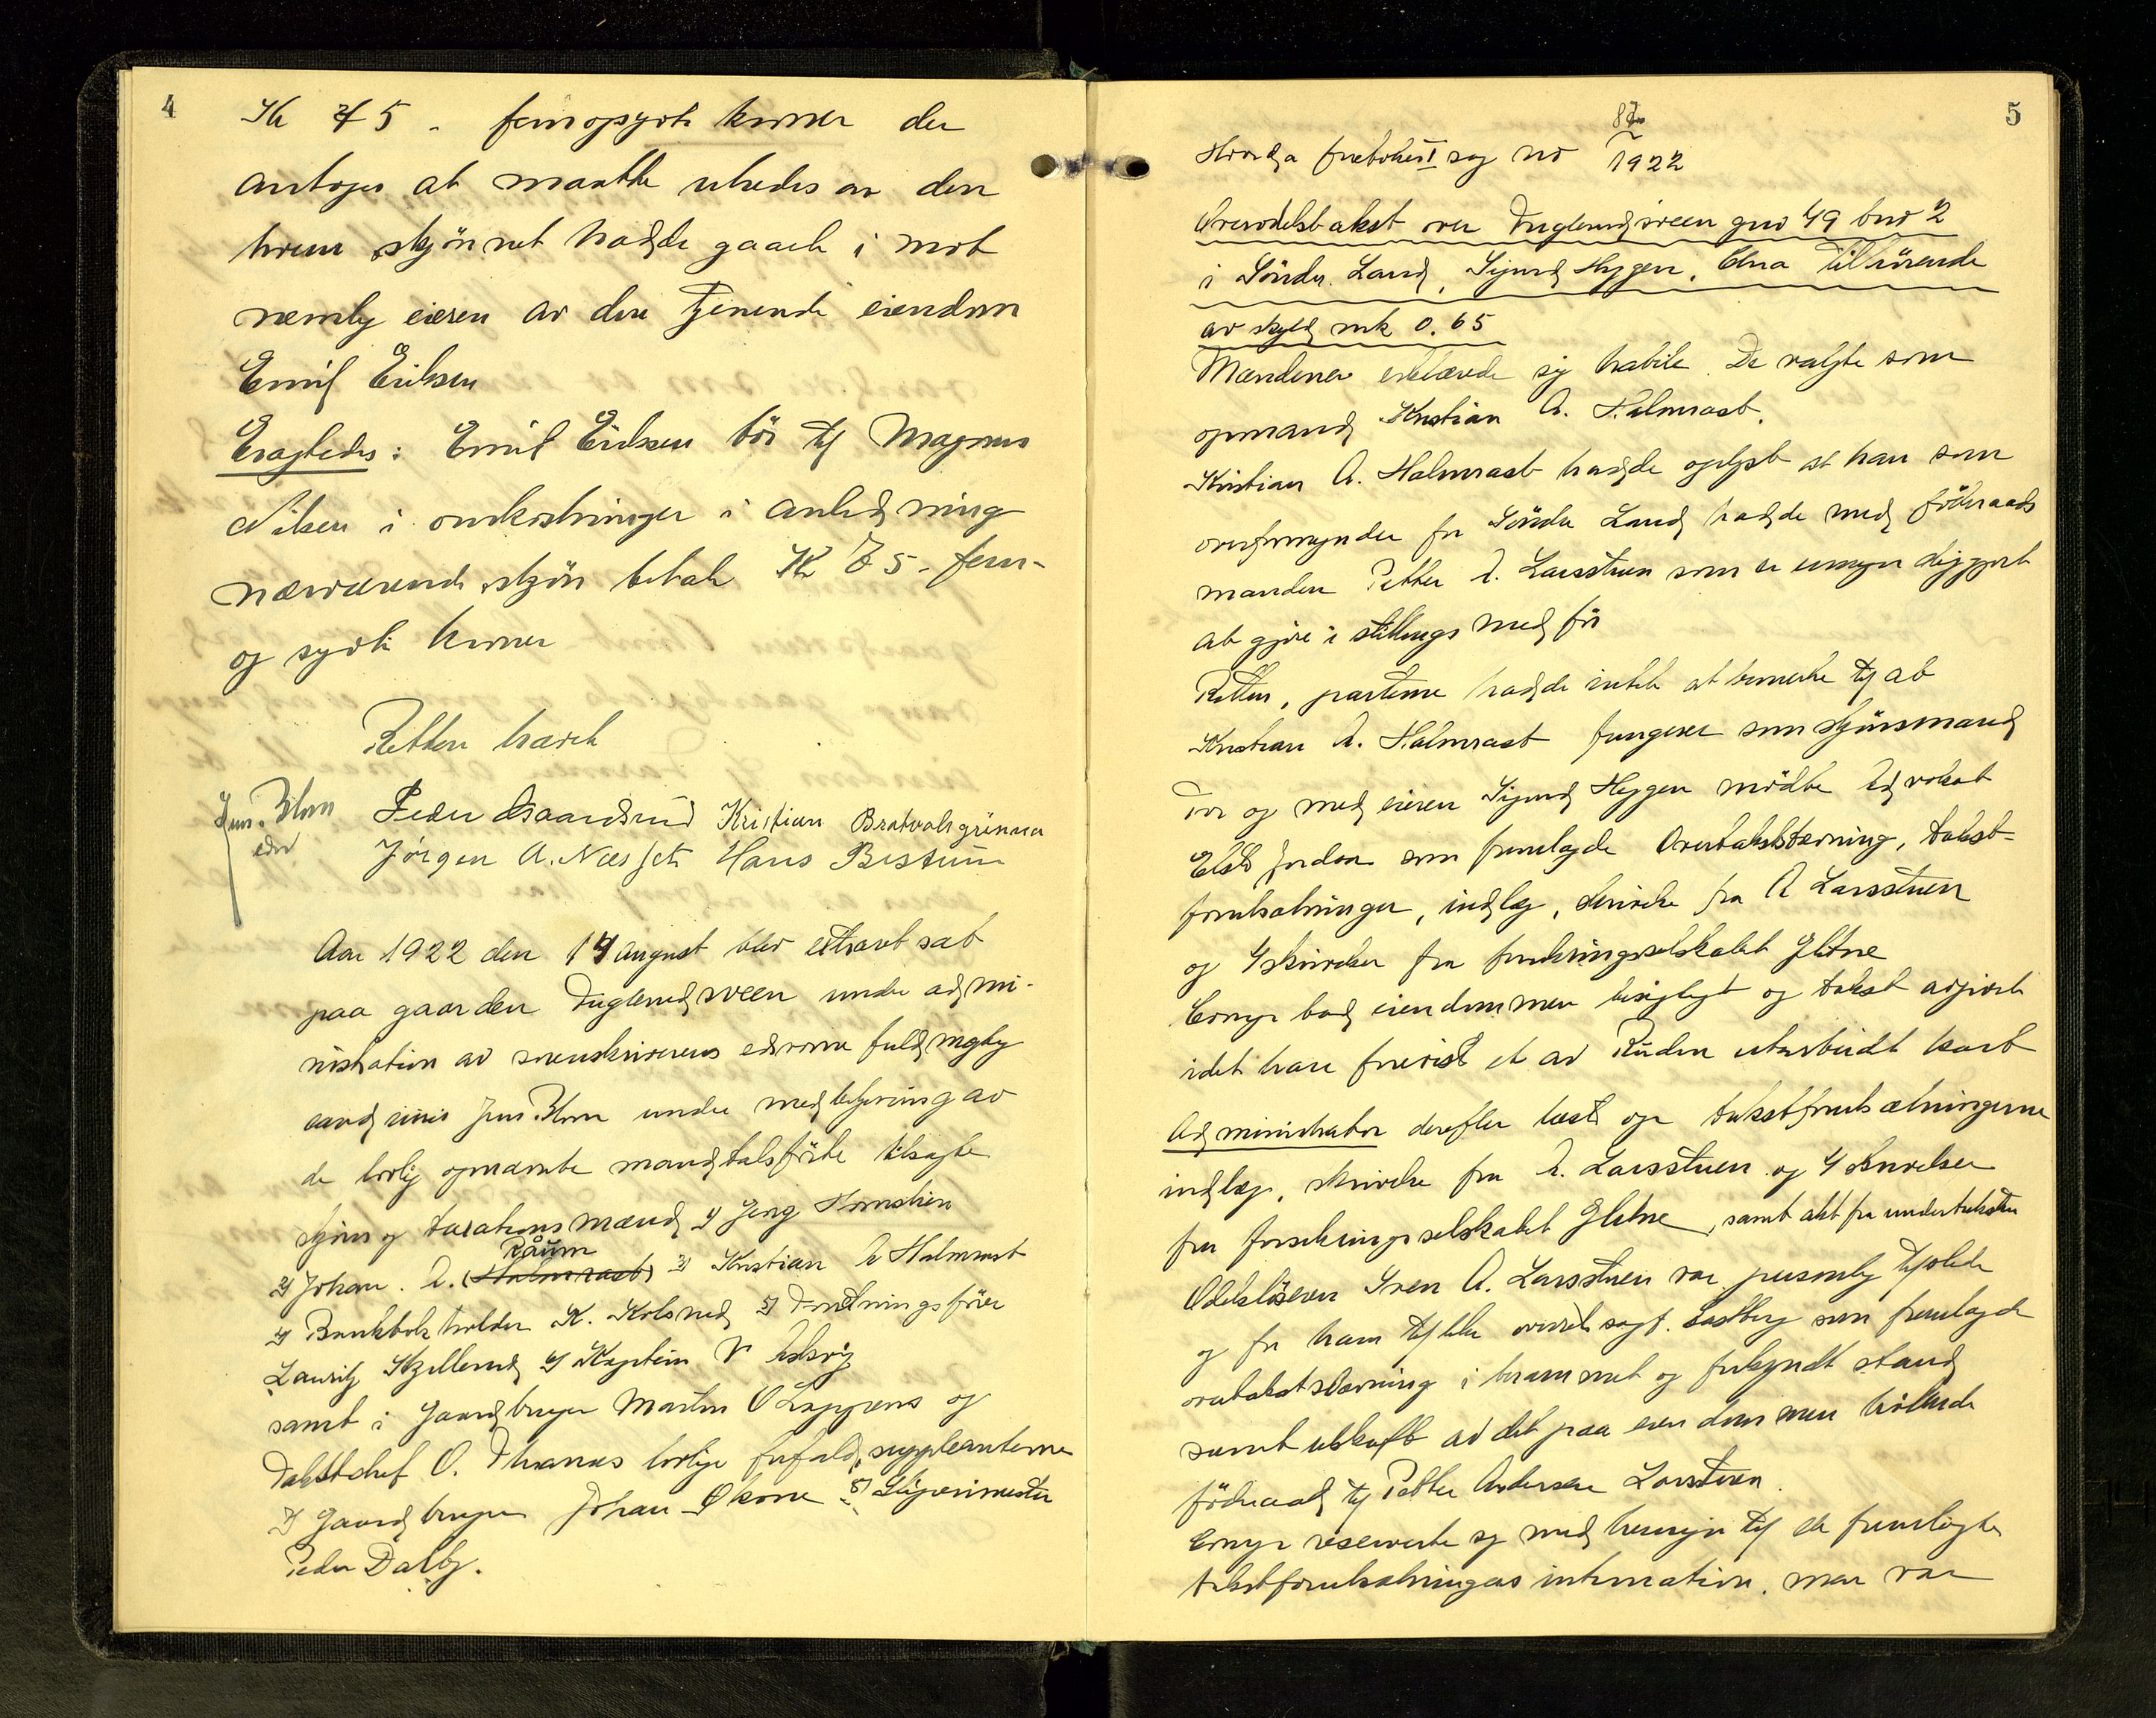 4
Kr 75 - femogsyvti kroner der
antages at maatte utredes av den
hvem skjönnet hadde gaaet i mot
nemlig eieren av den tjenende eiendom
Emil Eriksen
Eragtedes: Emil Eriksen bör til Magnus
Nilsen i omkostninger i anledning
nærværende skjön betale Kr 75 - fem-
og syvti kroner
Retten hævet
Jens Blom Peder Gaardsrud Kristian Bratvoldgrinna
edsv Jörgen A. Næsset Hans
Aar 1922 den 14 august blev extraret sat
paa gaarden Duglerudsveen under admi-
nistration av sorenskriverens edsvorne fuldmægtig
cand juris Jens Blom under medbetjening av
de lovlig opnævnte mandtalsförte tilsagte
skjöns og taxationsmænd 1)
Raum
2) Johan. A. (Halmrast) 3) Kristian A Halmrast
4) Bankbokholder K. Kolsrud 5) Forretningsförer
Lauritz Skjellerud 6) Kaptein
samt i Gaardbruger Martin O og
O. lovlige forfald, suppleanterne
7) Gaardbruger Johan Økone 8)
Peder Dalby.
5
87
Hvorda foretokes I sag nr 1922
Overodelstakst over Duglerudsveen gno 49 bno 2
i Söndre Land, Sigurd Hygen, Elna tilhörende
av skyld mk 0.65
Mændene erklærede sig habile. De valgte som
opmand Kristian A. Halmrast.
Kristian A. Halmrast hadde oplyst at han som
overformynder for Söndre Land hadde med föderaads
manden Petter A. Larsstuen som er umyndiggjort
at gjøre i stillings med för
Retten, parterne hadde intet at bemerke til at
Kristian A. Halmrast fungerer som skjönsmand
For og med eieren Sigurd Hygen mödte Advokat
som fremlagde Overtakststævning, takst-
forutsætninger, indlæg, skrivelse fra A Larsstuen
og 4 skrivelser fra forsikringsselskabet Glitne
Comp. bad eiendommen besigtiget og takst avgivet
idet han foreviste et av Ruden utarbeidt kart
Administrator derefter læste op takstforutsætningerne
indlæg, skrivelse fra A. Larsstuen og 4 skrivelser
fra forsikringsselskabet Glitne, samt akt fra undertaksten
Odelslöseren Sven A. Larsstuen var personlig tilstede
og for ham tillike overretssagf. Castberg som fremlagde
overtakststævning i berammet og forkyndt stand
samt utskrift av det paa eiendommen hvilende
föderaad til Petter Andersen Larsstuen.
Comp. reserverte sig med hensyn til de fremlagte
takstforutsætningers intimation. man var